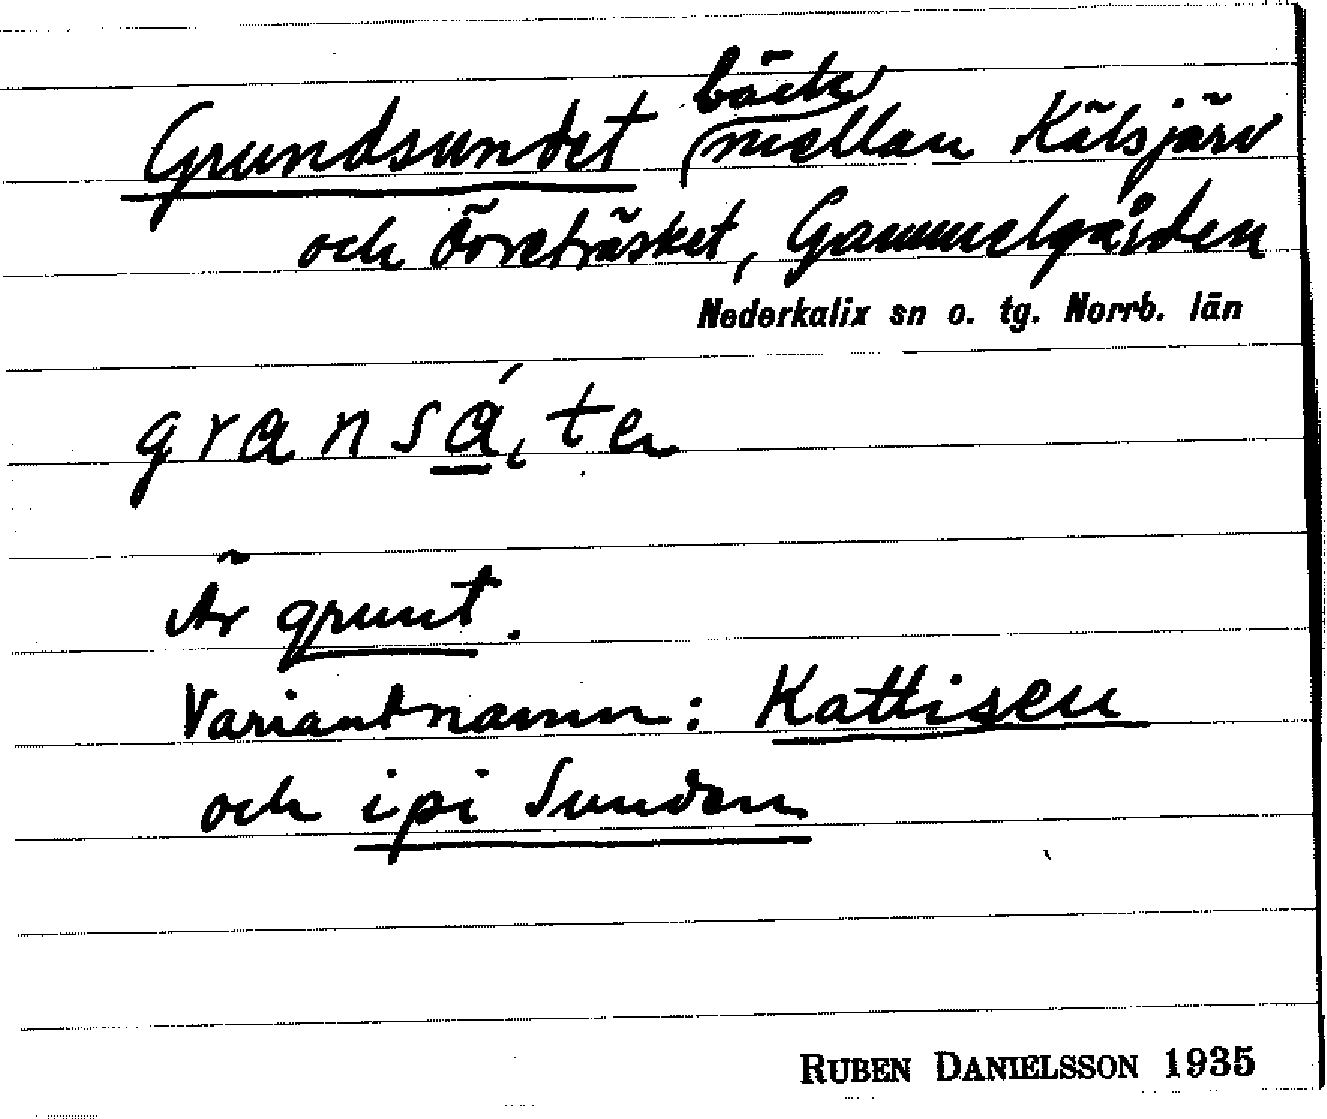 Grundsundet bäck mellan Kälsjärv
och Övreträsket, Gammelgården
Nederkalix sn o. tg. Norrb. län
gransá̱ᵢten
Är grunt.
Variantnamn: Kattisen
och ipi Sunden
RUBEN DANIELSSON 1935